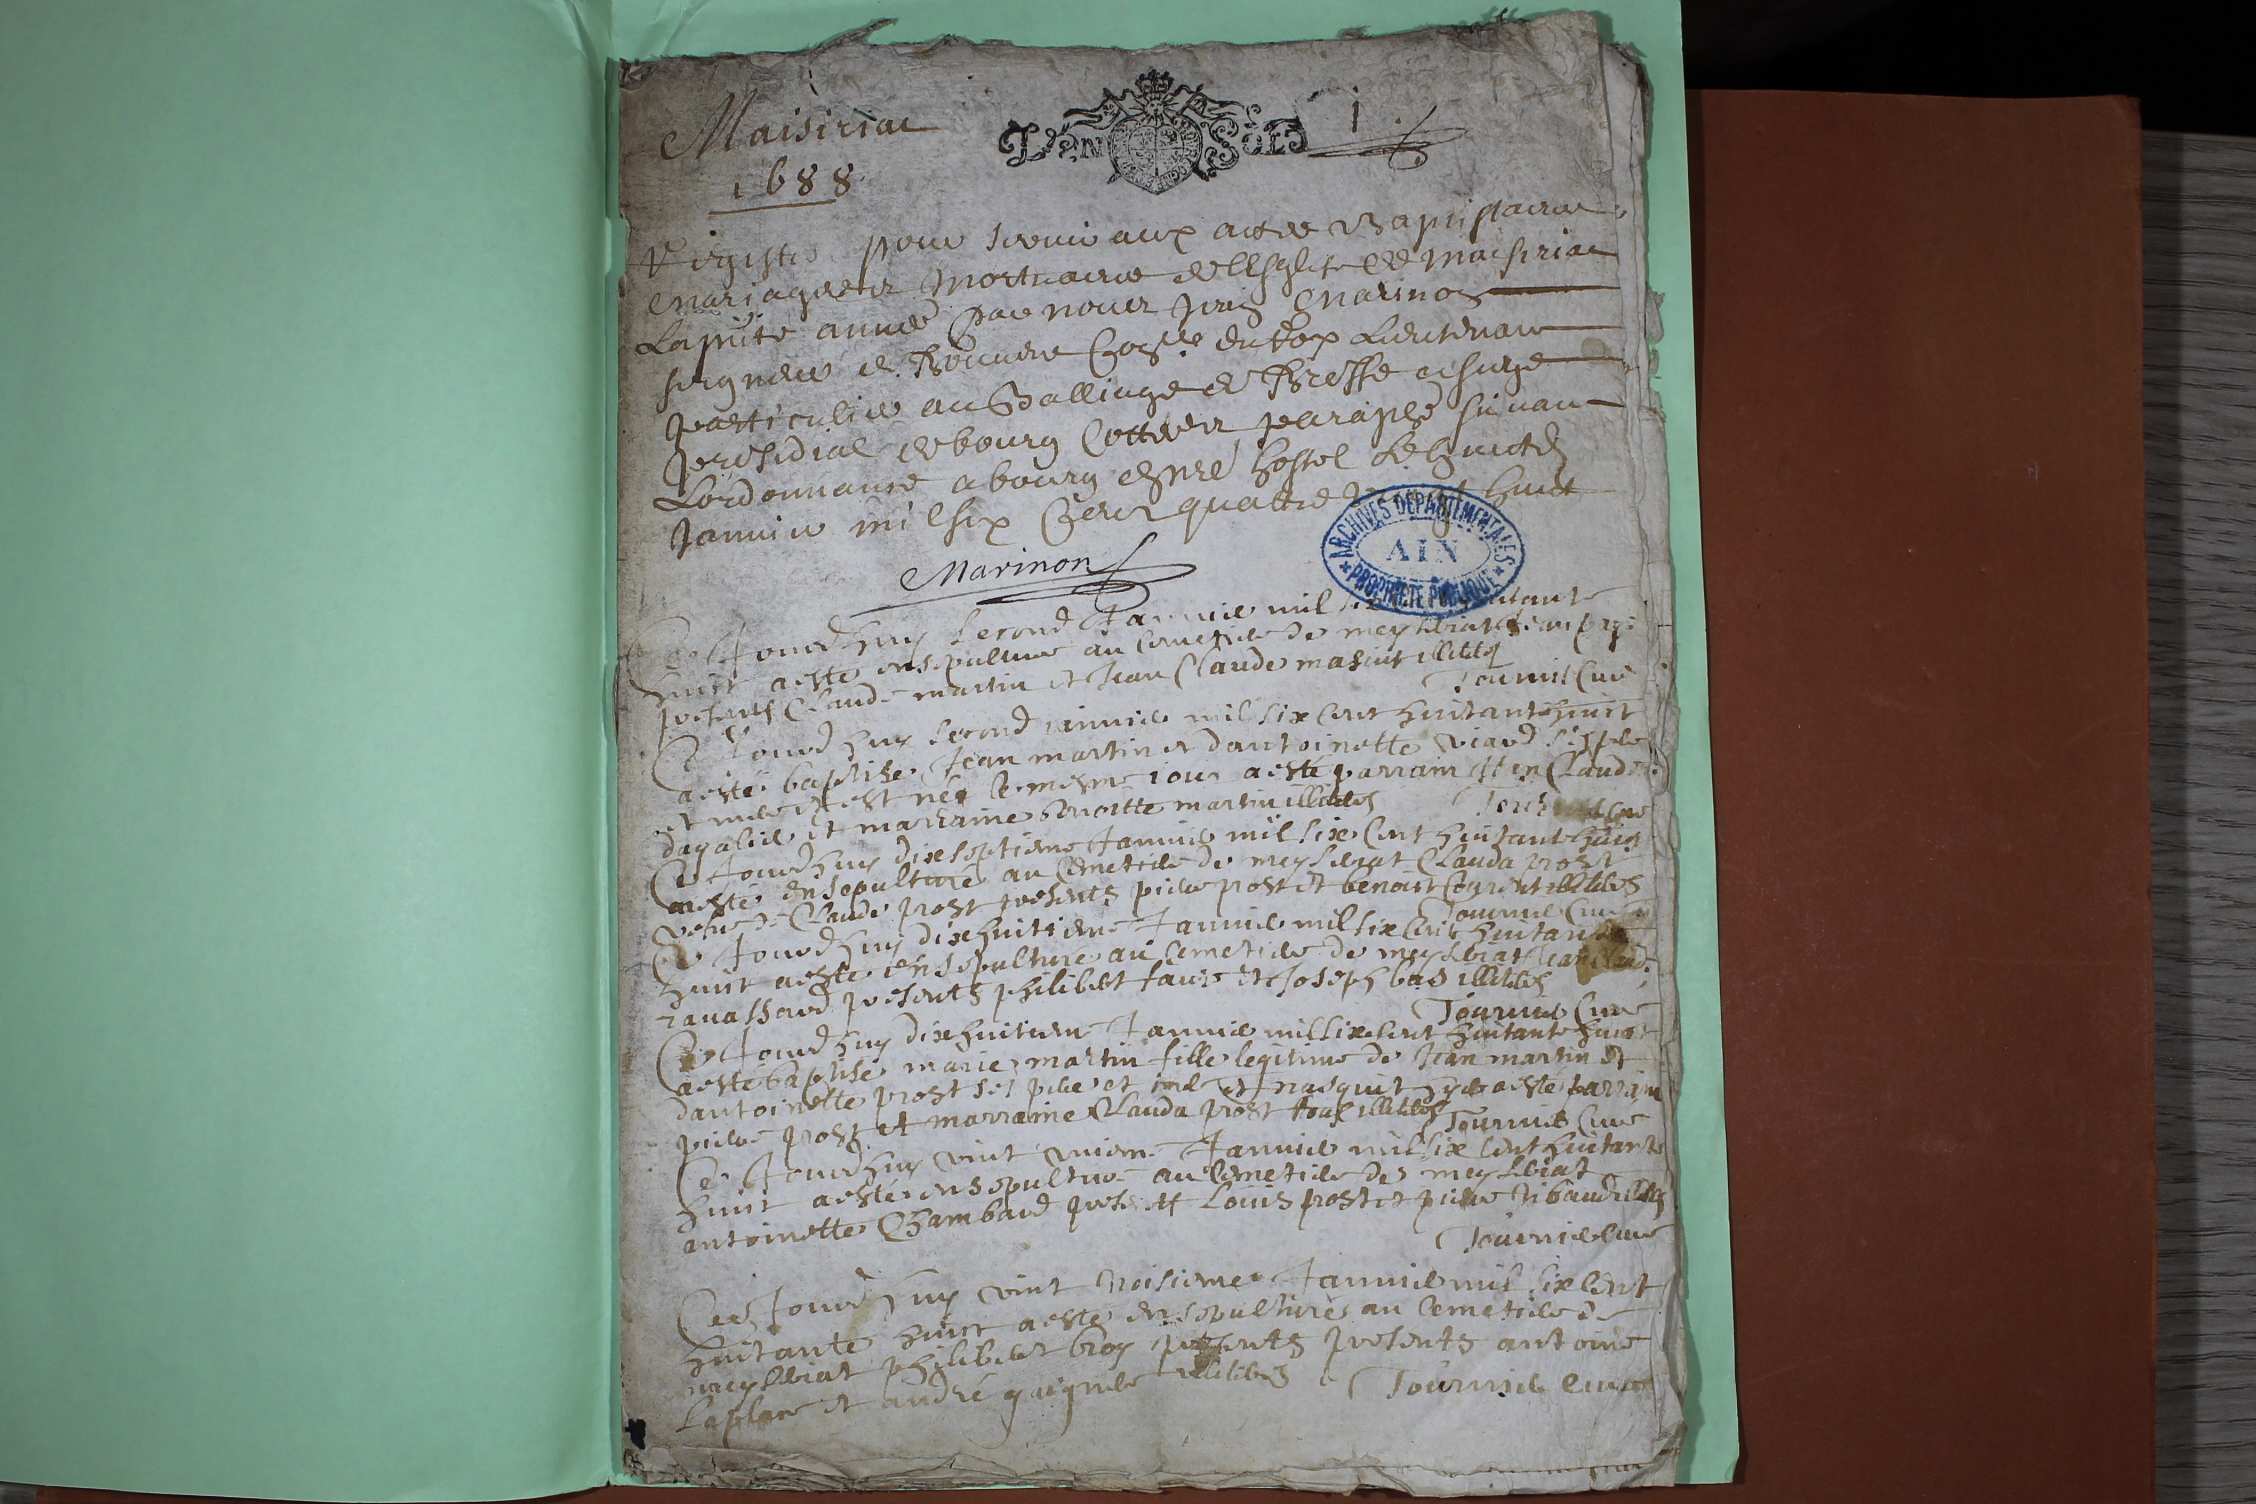 Maisiriac
1688
Vn Sol
1
Registre pour servir aux actes Baptistaires
Mariages et Mortuaires de lEsglise de Maisiriac
La pnte année par nous Marinon
seigneur de Lieutenant
particulier au Balliage de Bresse et siege
presidial de bourg Cotté et paraphé suivant
Lordonnance a bourg hostel Le huict
Janvier mil six Cent quattre huict
Marinon
ARCHIVES DÉPARTEMENTALES
AIN
PROPRIÉTÉ PUBLIQUE
Ce Jourdhuy second Janvier mil six huitante
huict a esté ensepulturé au Cemetiere de meyseriat
presents Claude martin et Jean Claude illitterés
Tournier Curé
Ce Jourdhuy second janvier mil six cent huitante huict
a esté baptisé Jean martin et dantoinette viard ses pere
et mere et est né le mesme iour a esté parrain Claude
dagalier et marraine benoitte martin illiterés
Curé
Ce Jourdhuy dixseptieme Janvier mil six Cent huitante huict
a esté ensepulturé au Cemetiere de meyseriat Clauda prost
vefve de Claude prost presents pierre prost et benoist illiterés
Tournier Curé
Ce Jourdhuy dixhuitieme Janvier mil six Cent huitante
huict a esté ensepulturé au Cemetiere de meyseriat
ravassard presents philibert faure et Joseph bas illiterés
Tournier Curé
Ce Jourdhuy dixhuitieme Janvier mil six Cent huitante huict
a esté baptisé marie martin fille legitime de Jean martin et
dantoinette prost ses pere et mere et nasquit hyer a esté parrain
pierre prost et marraine Clauda prost tous illiterés
Tournier Curé
Ce Jourdhuy vint unieme Janvier mil six Cent huitante
huict a esté ensepulturé au Cemetiere de meyseriat
antoinette Chambard presents Louis prost et pierre ribaud illiterés
Tournier Curé
Ce Jourdhuy vint troisieme Janvier mil six Cent
huitante huict a esté ensepulturé au Cemetiere de
meyseriat philibert broy presents presents antoine
Laplace et andré illiterés
Tournier Curé